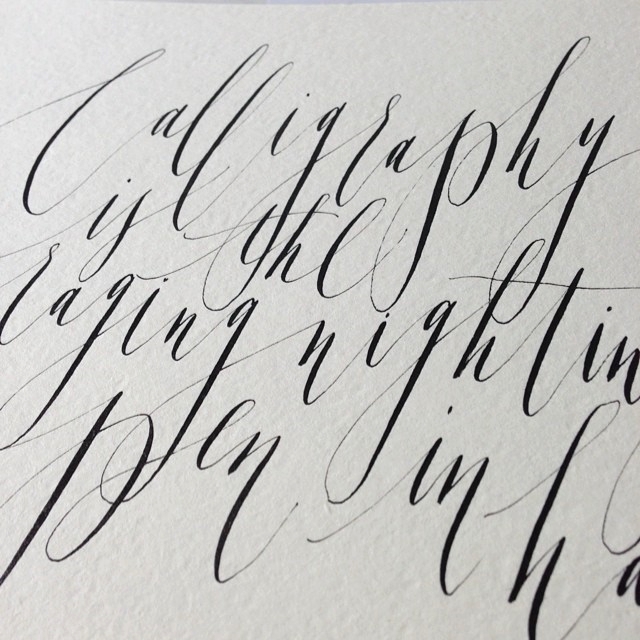 Calligraphy
is the
raging night in
pen in ha